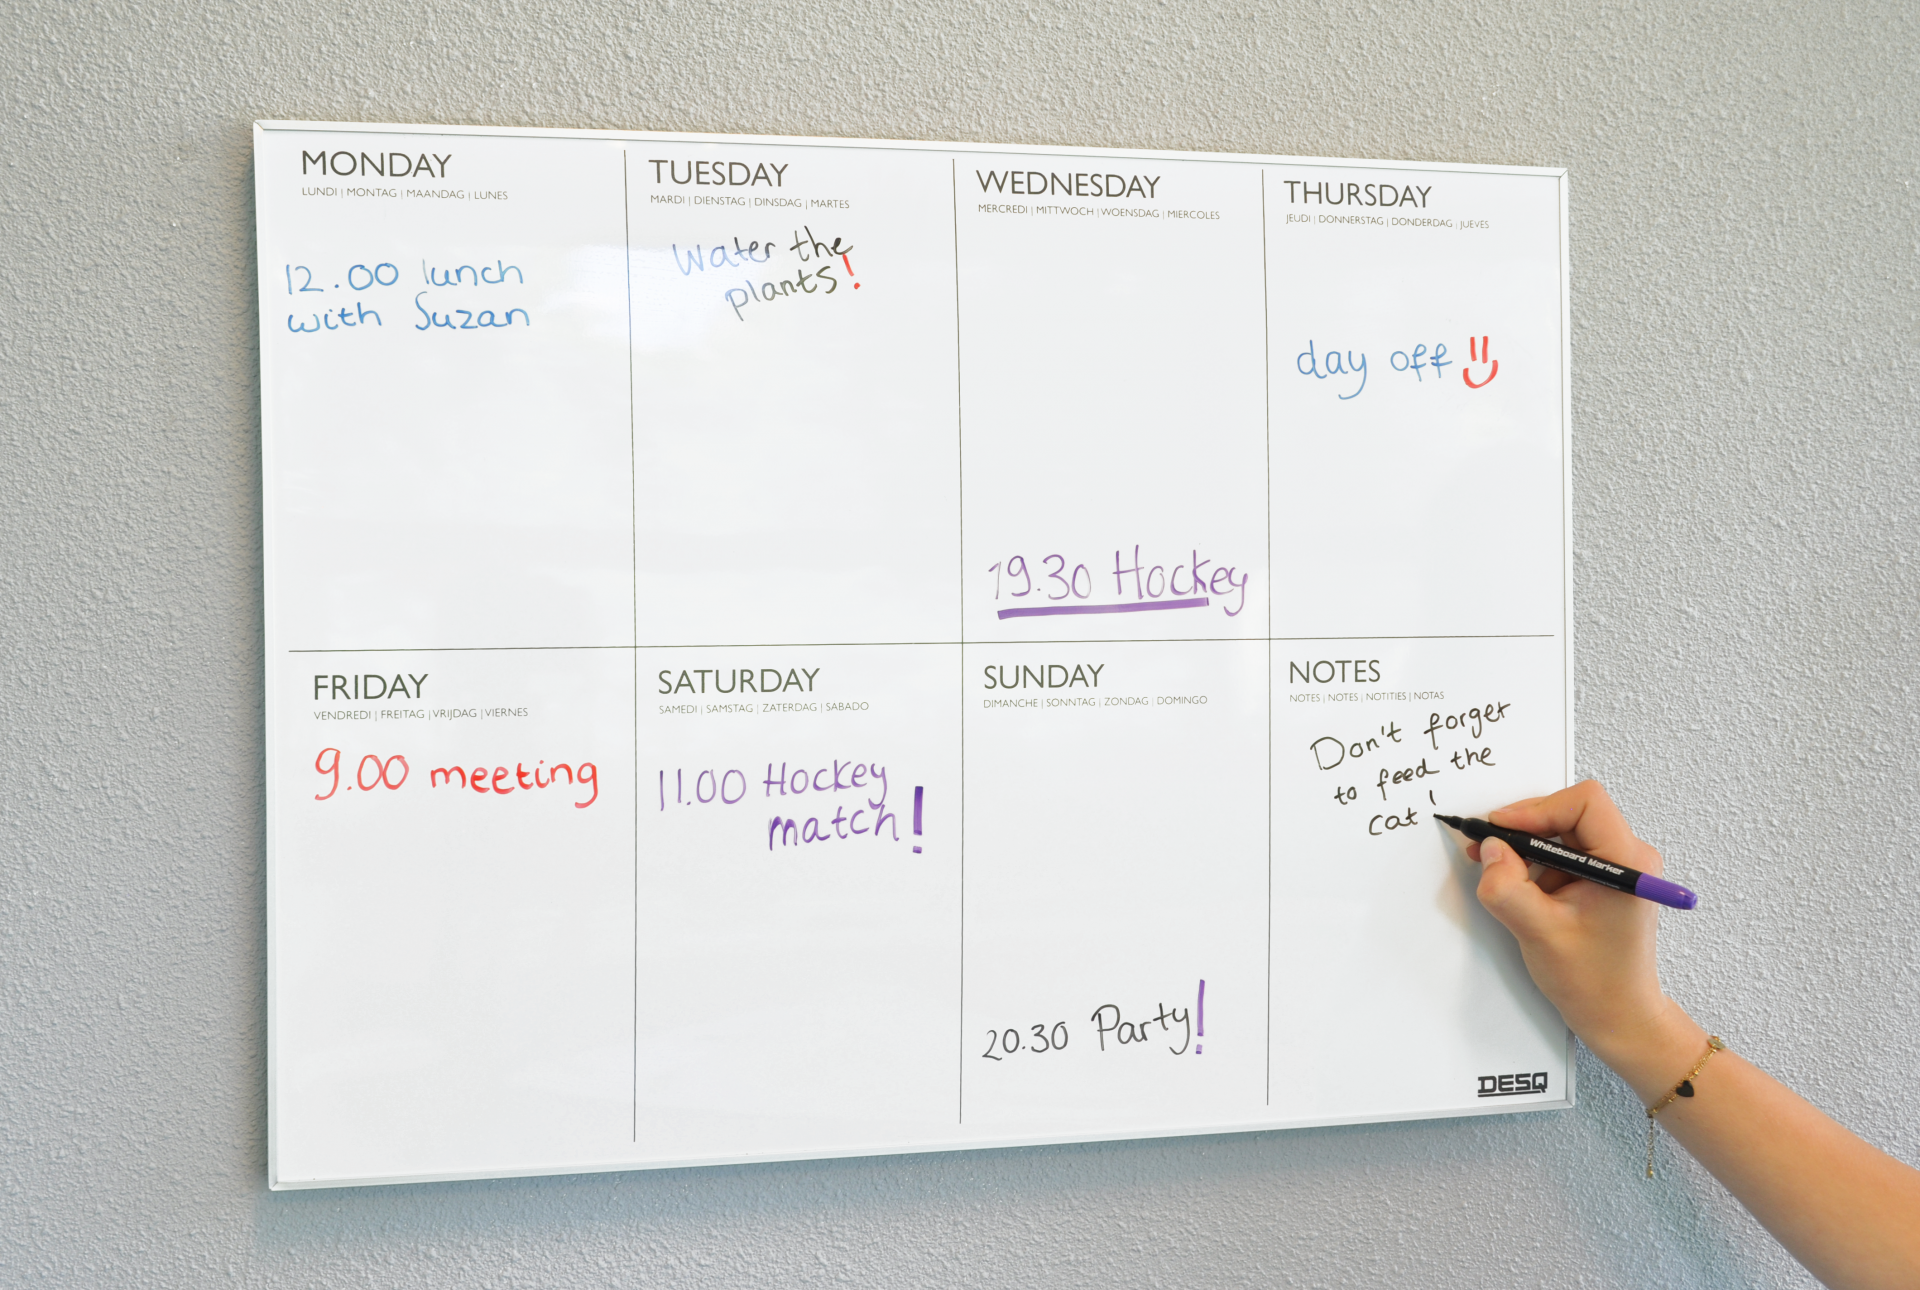 MONDAY
LUNDI | MONTAG | MAANDAG | LUNES
12.00 lunch
with Suzan
TUESDAY
MARDI | DIENSTAG | DINSDAG | MARTES
Water the
plants!
WEDNESDAY
MERCREDI | MITTWOCH | WOENSDAG | MIERCOLES
19.30 Hockey
THURSDAY
JEUDI | DONNERSTAG | DONDERDAG | JUEVES
day off
FRIDAY
VENDREDI | FREITAG | VRIJDAG | VIERNES
9.00 meeting
SATURDAY
SAMEDI | SAMSTAG | ZATERDAG | SABADO
11.00 Hockey
match!
SUNDAY
DIMANCHE | SONNTAG | ZONDAG | DOMINGO
20.30 Party!
NOTES
NOTES | NOTES | NOTITIES | NOTAS
Don't forget
to feed the
cat!
Whiteboard Marker
DESQ